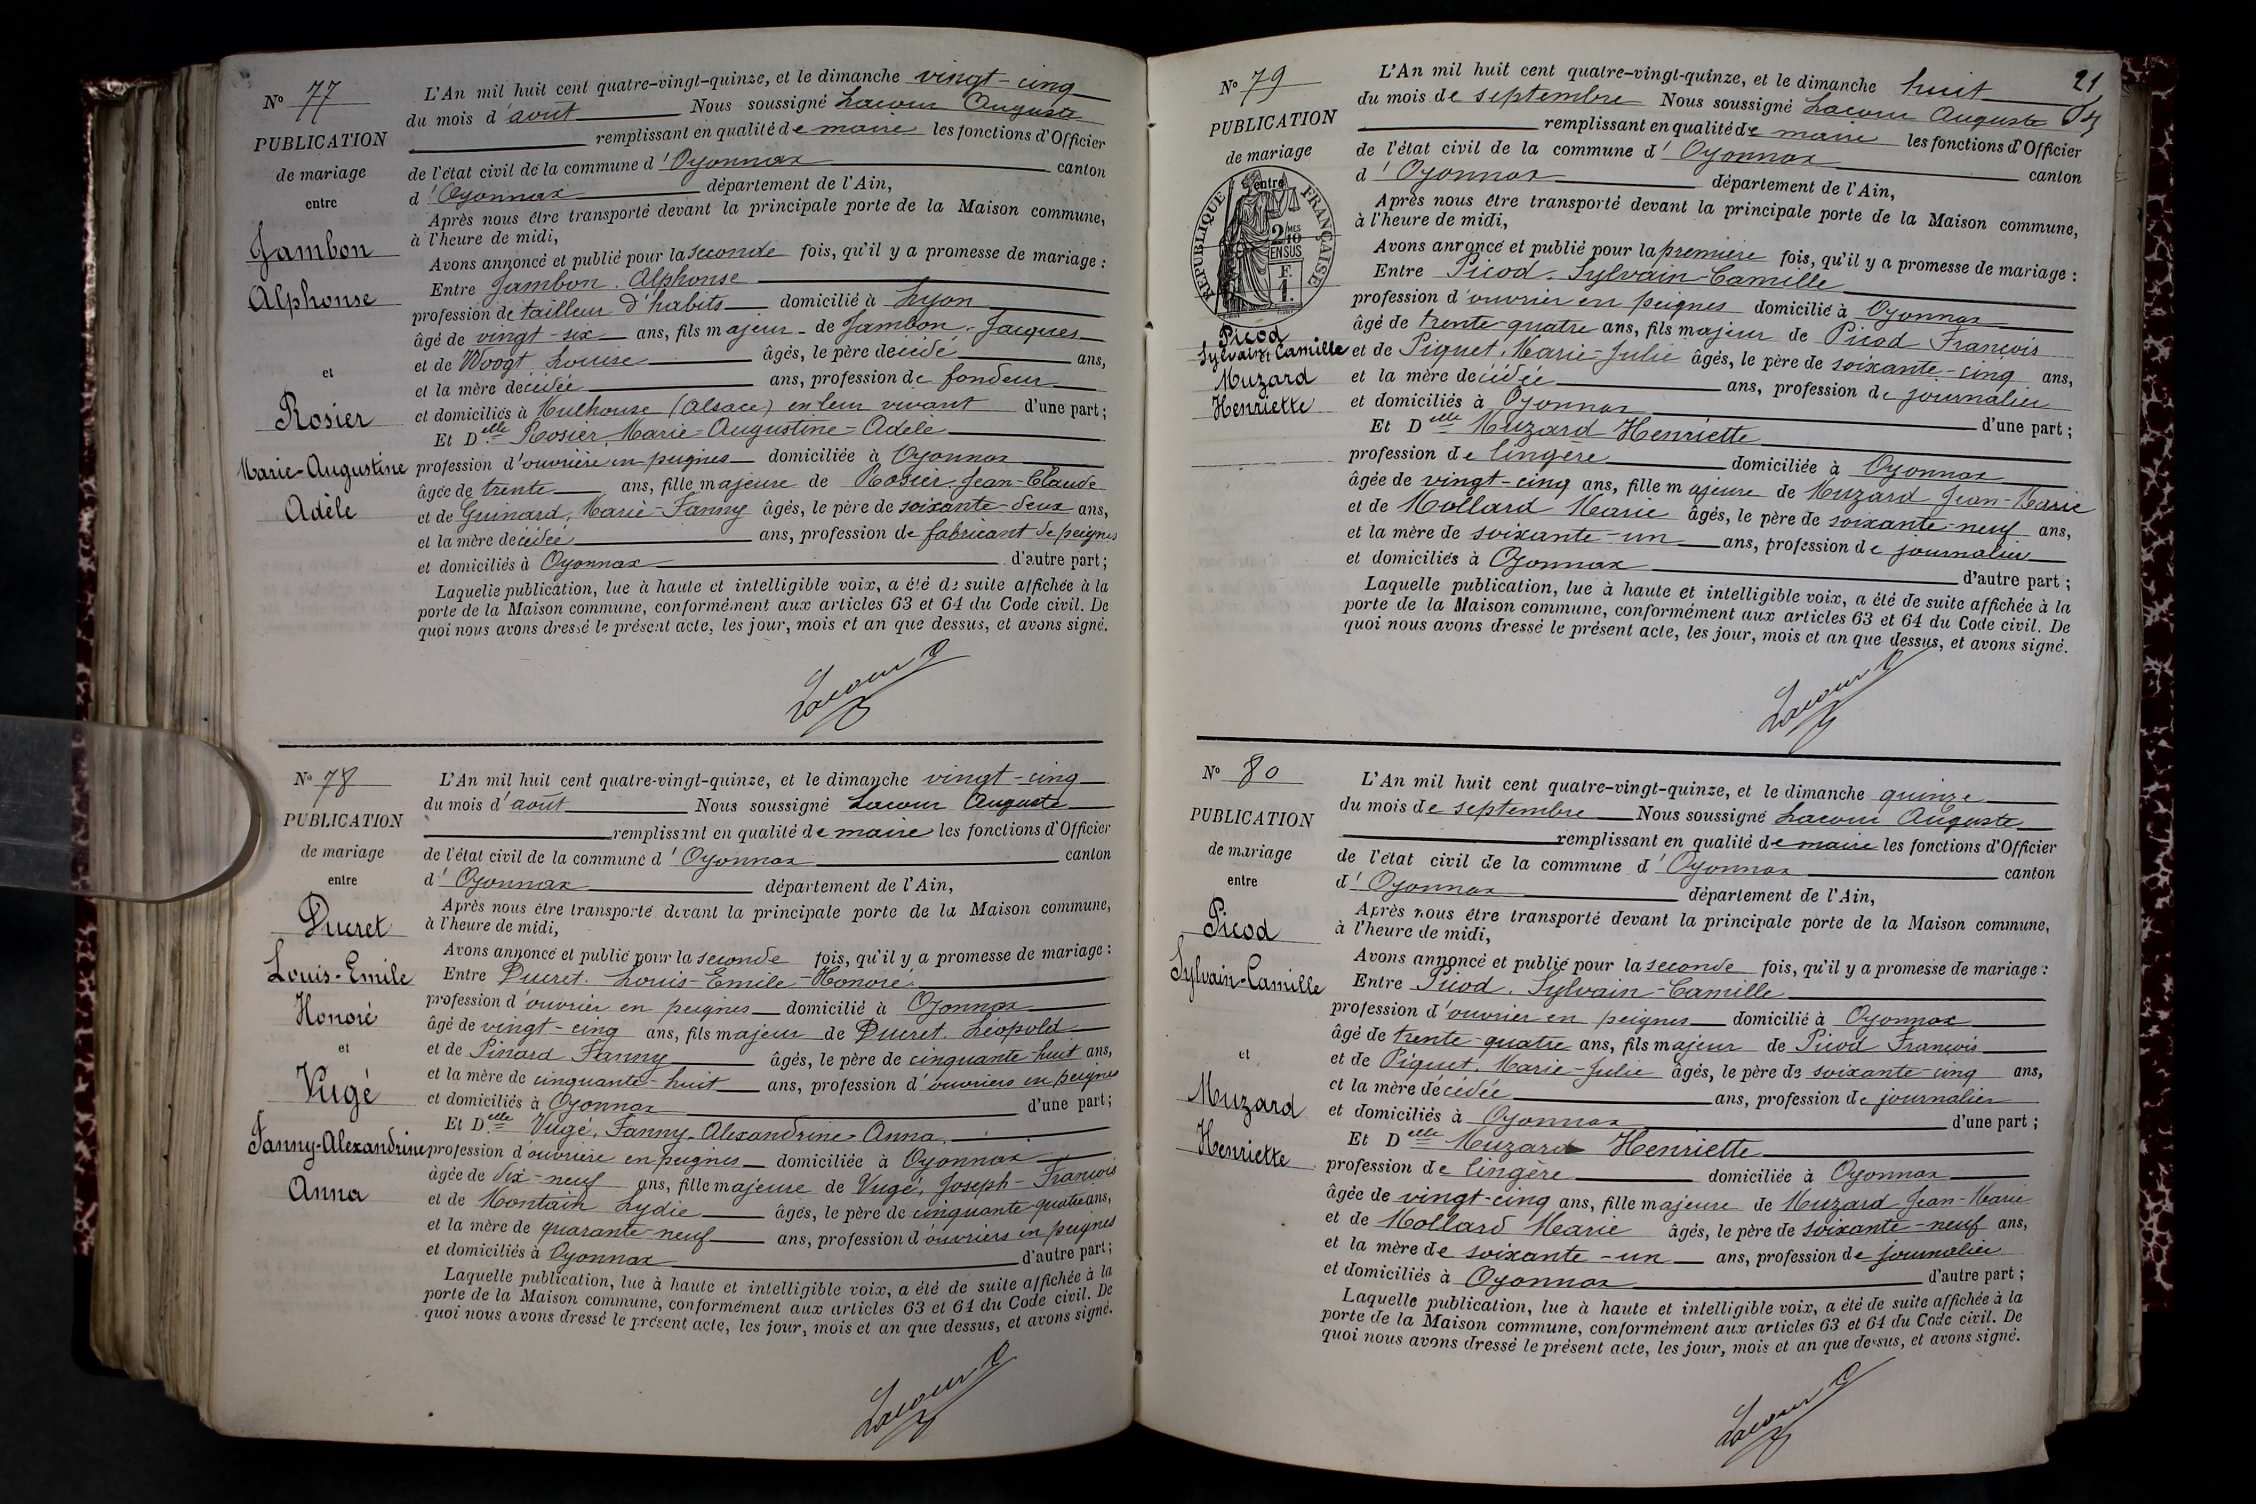 N° 77
PUBLICATION
de mariage
entre
Jambon
Alphonse
et
Rosier
Marie-Augustine
Adèle
L'An mil huit cent quatre-vingt-quinze, et le dimanche vingt-cinq
du mois d'août Nous soussigné Lacour Auguste
remplissant en qualité de maire les fonctions d'Officier
de l'état civil de la commune d'Oyonnax canton
d'Oyonnax département de l'Ain,
Après nous être transporté devant la principale porte de la Maison commune,
à l'heure de midi,
Avons annoncé et publié pour la seconde fois, qu'il y a promesse de mariage :
Entre Jambon. Alphonse
profession de tailleur d'habits domicilié à Lyon
âgé de vingt-six ans, fils majeur de Jambon, Jacques
et de Woogt Louise âgés, le père décédé ans,
et la mère décédée ans, profession de fondeur
et domiciliés à Mulhouse (Alsace) en leur vivant d'une part ;
Et Delle Rosier, Marie=Augustine=Adèle
profession d'ouvrière en peignes domiciliée à Oyonnax
âgée de trente ans, fille majeure de Rosier, Jean-Claude
et de Guinard, Marie-Fanny âgés, le père de soixante-deux ans,
et la mère décédée ans, profession de fabricant de peignes
et domiciliés à Oyonnax d'autre part ;
Laquelle publication, lue à haute et intelligible voix, a été de suite affichée à la
porte de la Maison commune, conformément aux articles 63 et 64 du Code civil. De
quoi nous avons dressé le présent acte, les jour, mois et an que dessus, et avons signé.
Lacour
N° 78
PUBLICATION
de mariage
entre
Ducret
Louis-Emile
Honoré
et
Vugé
Fanny-Alexandrine
Anna
L'An mil huit cent quatre-vingt-quinze, et le dimanche vingt-cinq
du mois d'août Nous soussigné Lacour Auguste
remplissant en qualité de maire les fonctions d'Officier
de l'état civil de la commune d'Oyonnax canton
d'Oyonnax département de l'Ain,
Après nous être transporté devant la principale porte de la Maison commune,
à l'heure de midi,
Avons annoncé et publié pour la seconde fois, qu'il y a promesse de mariage :
Entre Ducret. Louis-Emile-Honoré.
profession d'ouvrier en peignes domicilié à Oyonnax
âgé de vingt-cinq ans, fils majeur de Ducret. Léopold
et de Pinard Fanny âgés, le père de cinquante-huit ans,
et la mère de cinquante-huit ans, profession d'ouvriers en peignes
et domiciliés à Oyonnax d'une part ;
Et Delle Vugé, Fanny-Alexandrine=Anna,
profession d'ouvrière en peignes domiciliée à Oyonnax
âgée de dix-neuf ans, fille majeure de Vugé, Joseph-François
et de Montain Lydie âgés, le père de cinquante-quatre ans,
et la mère de quarante-neuf ans, profession d'ouvriers en peignes
et domiciliés à Oyonnax d'autre part ;
Laquelle publication, lue à haute et intelligible voix, a été de suite affichée à la
porte de la Maison commune, conformément aux articles 63 et 64 du Code civil. De
quoi nous avons dressé le présent acte, les jour, mois et an que dessus, et avons signé.
Lacour
21
N° 79
PUBLICATION
de mariage
entre
RÉPUBLIQUE FRANÇAISE
2 MES 10
EN SUS
F.
1.
Picod
Sylvain Camille
et
Muzard
Henriette
L'An mil huit cent quatre-vingt-quinze, et le dimanche huit
du mois de septembre Nous soussigné Lacour Auguste
remplissant en qualité de maire les fonctions d'Officier
de l'état civil de la commune d'Oyonnax canton
d'Oyonnax département de l'Ain,
Après nous être transporté devant la principale porte de la Maison commune,
à l'heure de midi,
Avons annoncé et publié pour la première fois, qu'il y a promesse de mariage :
Entre Picod. Sylvain-Camille
profession d'ouvrier en peignes domicilié à Oyonnax
âgé de trente-quatre ans, fils majeur de Picod François
et de Piquet, Marie-Julie âgés, le père de soixante-cinq ans,
et la mère décédée ans, profession de journalier
et domiciliés à Oyonnax d'une part ;
Et Delle Muzard Henriette
profession de lingère domiciliée à Oyonnax
âgée de vingt-cinq ans, fille majeure de Muzard Jean-Marie
et de Mollard Marie âgés, le père de soixante-neuf ans,
et la mère de soixante-un ans, profession de journalier
et domiciliés à Oyonnax d'autre part ;
Laquelle publication, lue à haute et intelligible voix, a été de suite affichée à la
porte de la Maison commune, conformément aux articles 63 et 64 du Code civil. De
quoi nous avons dressé le présent acte, les jour, mois et an que dessus, et avons signé.
Lacour
N° 80
PUBLICATION
de mariage
entre
Picod
Sylvain-Camille
et
Muzard
Henriette
L'An mil huit cent quatre-vingt-quinze, et le dimanche quinze
du mois de septembre Nous soussigné Lacour Auguste
remplissant en qualité de maire les fonctions d'Officier
de l'état civil de la commune d'Oyonnax canton
d'Oyonnax département de l'Ain,
Après nous être transporté devant la principale porte de la Maison commune,
à l'heure de midi,
Avons annoncé et publié pour la seconde fois, qu'il y a promesse de mariage :
Entre Picod. Sylvain-Camille
profession d'ouvrier en peignes domicilié à Oyonnax
âgé de trente-quatre ans, fils majeur de Picod François
et de Piquet. Marie-Julie âgés, le père de soixante-cinq ans,
et la mère décédée ans, profession de journalier
et domiciliés à Oyonnax d'une part ;
Et Delle Muzard Henriette
profession de lingère domiciliée à Oyonnax
âgée de vingt-cinq ans, fille majeure de Muzard Jean-Marie
et de Mollard Marie âgés, le père de soixante-neuf ans,
et la mère de soixante-un ans, profession de journalier
et domiciliés à Oyonnax d'autre part ;
Laquelle publication, lue à haute et intelligible voix, a été de suite affichée à la
porte de la Maison commune, conformément aux articles 63 et 64 du Code civil. De
quoi nous avons dressé le présent acte, les jour, mois et an que dessus, et avons signé.
Lacour